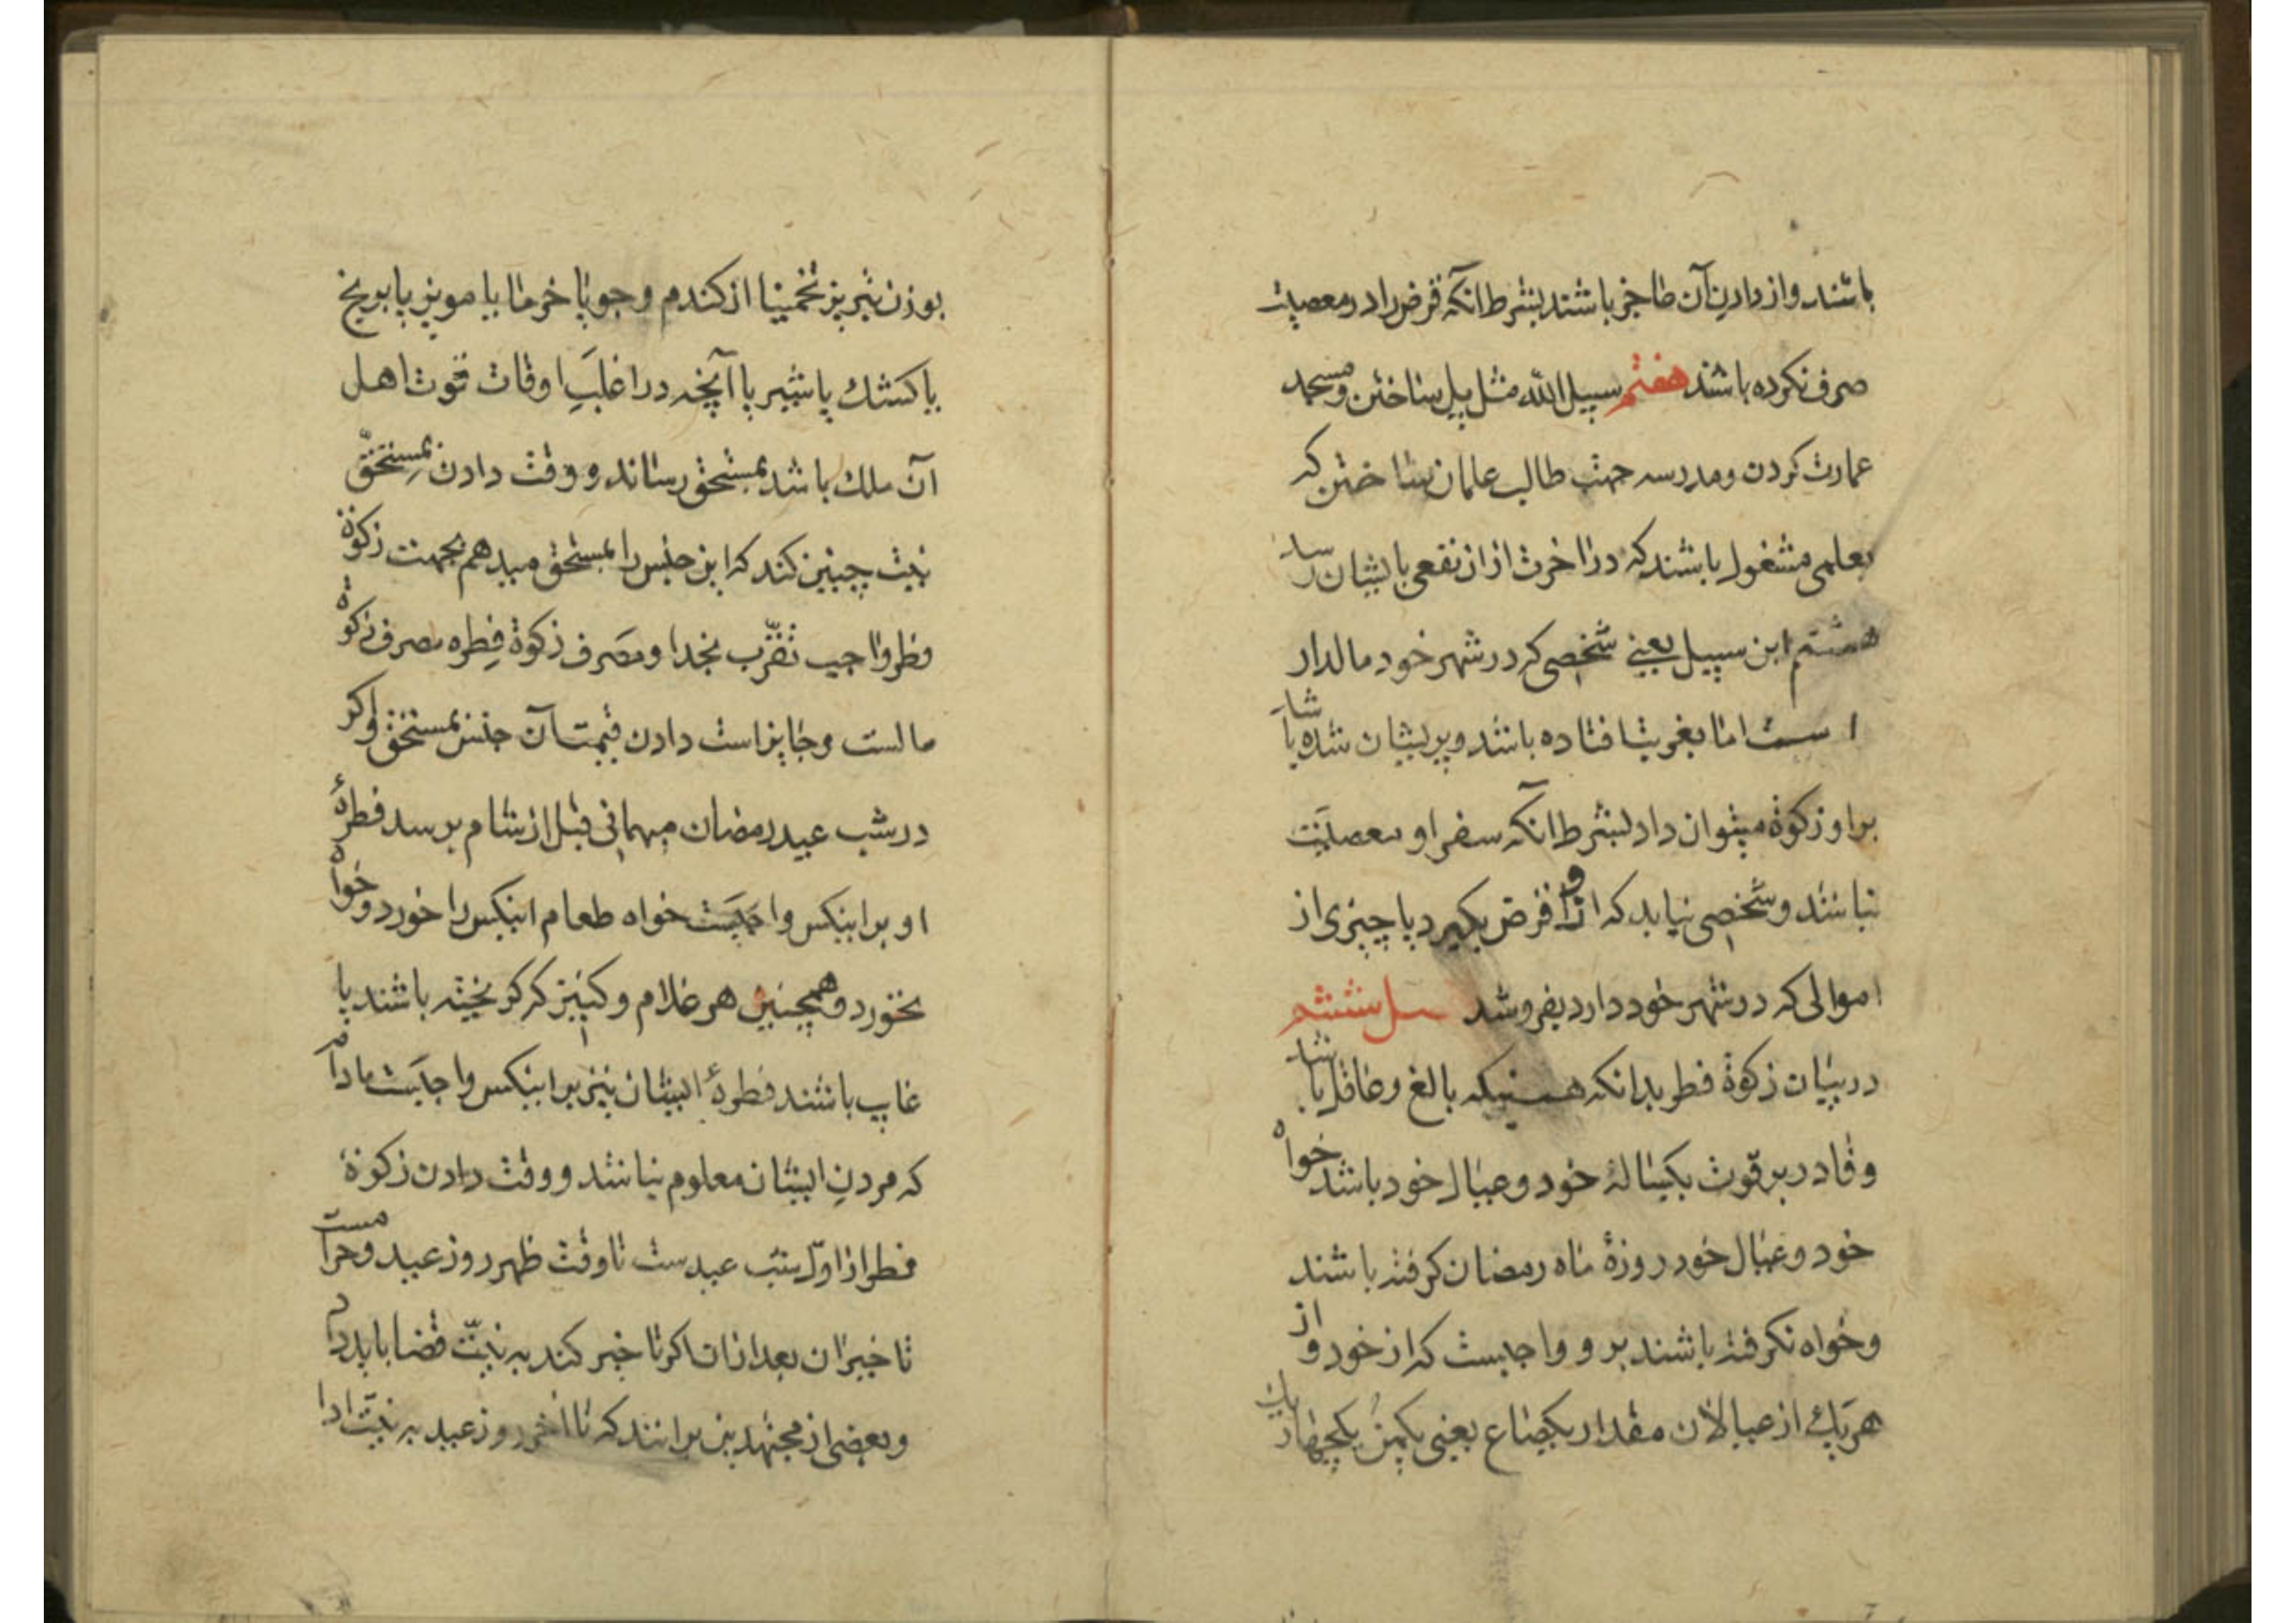 باشند و از دادن آن عاجز باشند بشرط آنکه قرض را در معصیت
صرف نکرده باشند هفتم سبیل الله مثل پل ساختن و مسجد
عمارت کردن و مدرسه جهت طالب علمان ساختن که
بعلمی مشغول باشند که در آخرت از ان نفعی بایشان رسد
هشتم ابن سبیل یعنی شخصی که در شهر خود مالدار
است اما بغربت افتاده باشد و پریشان شده باشد
براو زکوة میتوان داد بشرط آنکه سفر او معصیت
نباشد و شخصی نیابد که از او قرض بگیرد یا چیزی از
اموالی که در شهر خود دارد بفروشد ششم
در بیان زکوة فطر بدانکه هر کسیکه بالغ و عاقل باشد
و قادر بر قوت یکسالهٔ خود و عیال خود باشد خواه
خود و عیال خود روزهٔ ماه رمضان گرفته باشند
و خواه نگرفته باشند بر و واجبست که از خود و از
هریک از عیالان مقدار یکصاع یعنی یکمن یکچهاریک
بوزن تبریز تخمینا از کندم و جو یا خرما یا مویز یا برنج
یا کشک یا شیر یا آنچه در اغلب اوقات قوت اهل
آن ملک باشد بمستحق رساند و وقت دادن بمستحق
نیت چنین کند که این جنس را بمستحق میدهم بجهت زکوة
فطر واجب تقرب بخدا و مصرف زکوة فطره مصرف زکوة
مالست و جایز است دادن قیمت آن جنس بمستحق و اکر
در شب عید رمضان مهمانی قبل از شام برسد فطرهٔ
او بر اینکس واجبست خواه طعام اینکس را خورد و خواه
نخورد و همچنین هر غلام و کنیز که کریخته باشند یا
غایب باشند فطرهٔ ایشان نیز بر اینکس واجبست مادام
که مردن ایشان معلوم نباشد و وقت دادن زکوة
فطر از اول شب عید ست تا وقت ظهر روز عید و حرامست
تاخیر ان بعد ازان اکر تاخیر کند به نیت قضا باید داد
و بعضی از مجتهدین برانند که تا آخر روز عید به نیت ادا